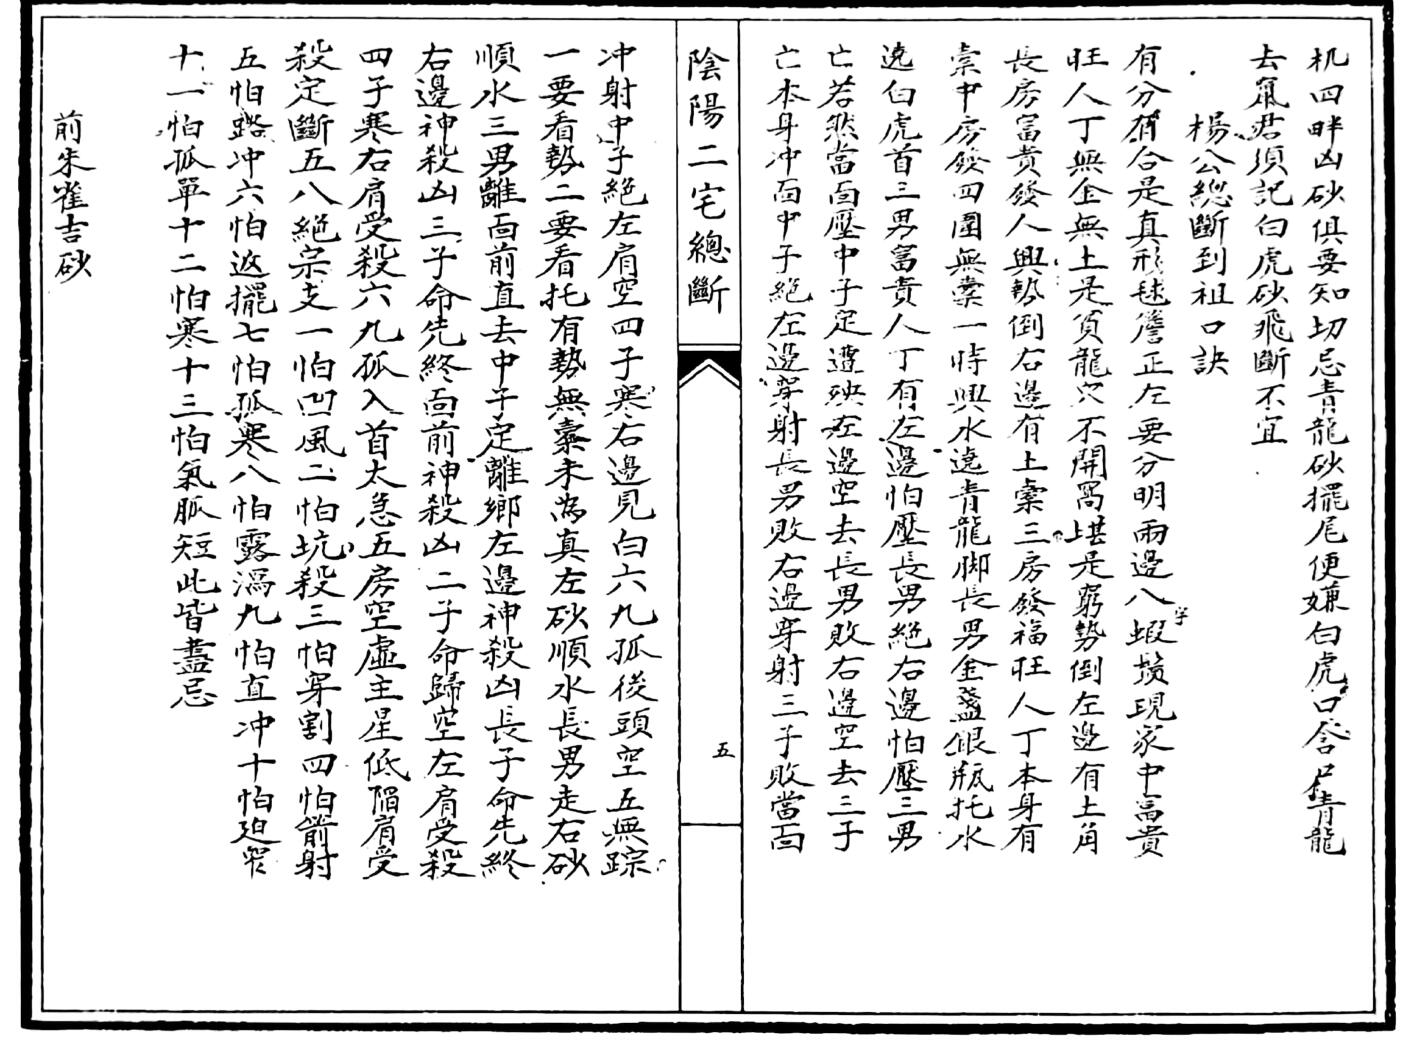 机四畔凶砂俱要知切忌青龍砂擺尾便嫌白虎口含尸青龍
去竄君須記白虎砂飛斷不宜
楊公總斷到祖口訣
有分有合是真形毬簷正左要分明兩邊八字蝦鬚現家中富貴
旺人丁無金無土是貧龍穴不開窩堪是窮勢倒左邊有土角
長房富貴發人興勢倒右邊有土橐三房發福旺人丁本身有
橐中房發四圍無橐一時興水遶青龍脚長男金盞銀瓶托水
遶白虎首三男富貴人丁有左邊怕壓長男絕右邊怕壓三男
亡若然當面壓中子定遭殃左邊空去長男敗右邊空去三子
亡本身冲面中子絕左邊穿射長男敗右邊穿射三子敗當面
陰陽二宅總斷
五
冲射中子絕左肩空四子寒右邊見白六九孤後頭空五無踪
一要看勢二要看托有勢無橐未為真左砂順水長男走右砂
順水三男離面前直去中子定離鄉左邊神殺凶長子命先終
右邊神殺凶三子命先終面前神殺凶二子命歸空左肩受殺
四子寒右肩受殺六九孤入首太急五房空虛主星低陷肩受
殺定斷五八絕宗支一怕凹風二怕坑殺三怕穿割四怕箭射
五怕路冲六怕返擺七怕孤寒八怕露濕九怕直冲十怕廹窄
十一怕孤單十二怕寒十三怕氣脈短此皆盡忌
前朱雀吉砂